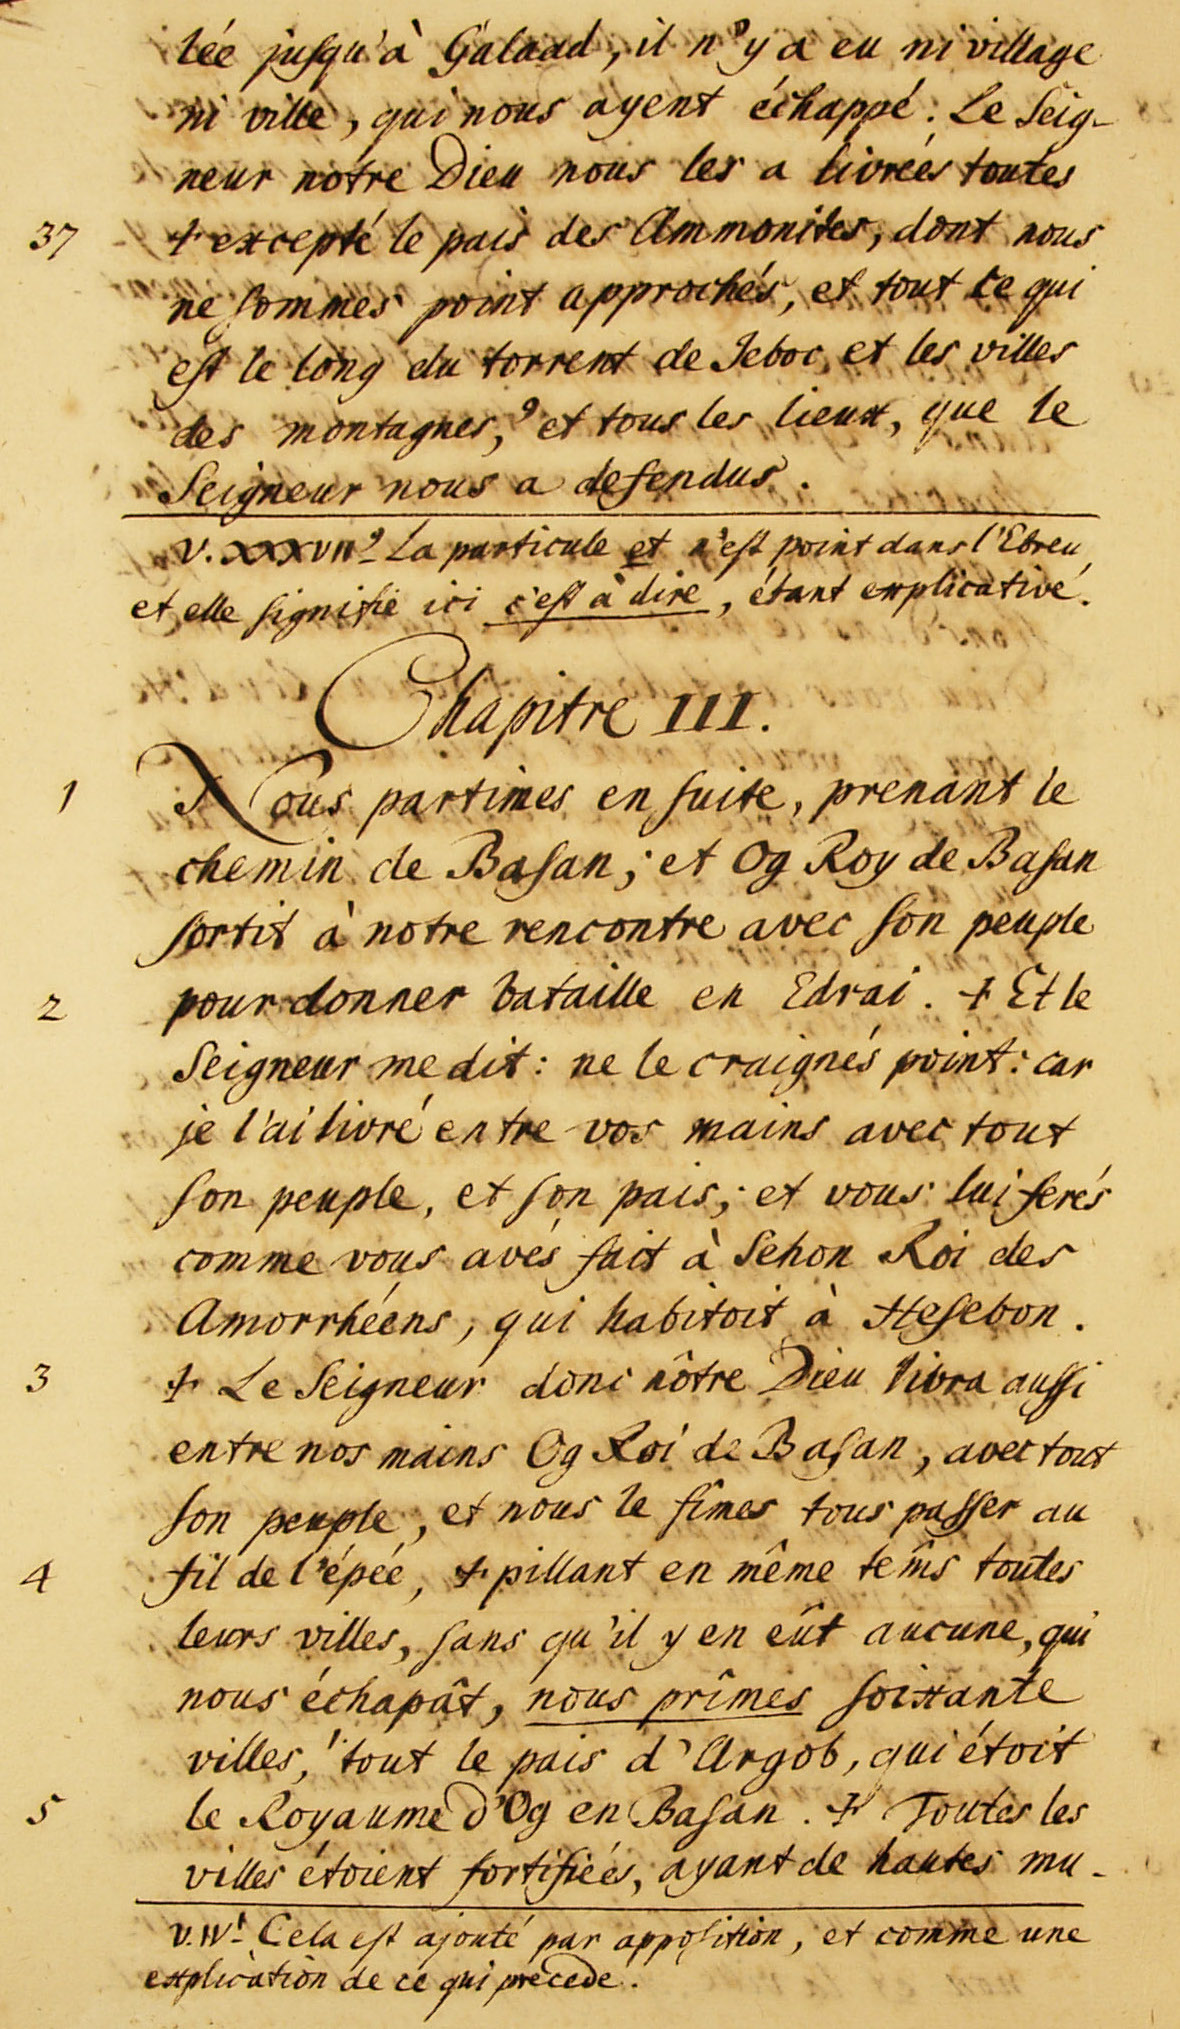 lée jusqu'à Galaad, il n'y a eu ni village
ni ville, qui nous ayent échappé. Le Seig-
neur notre Dieu nous les a livrées toutes
37 + excepté le païs des Ammonites, dont nous
ne sommes point approchés, et tout ce qui
est le long du torrent de Jeboc et les villes
des montagnes,⁹ et tous les lieux, que le
Seigneur nous a defendus.
V. XXXVII⁹. La particule et n'est point dans l'Ebreu,
et elle signifie ici c'est à dire, étant explicative.
Chapitre III.
1 Nous partimes en suite, prenant le
chemin de Basan; et Og Roy de Basan
sortit à notre rencontre avec son peuple
2 pour donner bataille en Edrai. + Et le
Seigneur me dit: ne le craignés point: car
je l'ai livré entre vos mains avec tout
son peuple, et son païs; et vous lui ferés
comme vous avés fait à Sehon Roi des
Amorrhéens, qui habitoit à Hesebon.
3 + Le Seigneur donc nôtre Dieu livra aussi
entre nos mains Og Roi de Basan, avec tout
son peuple, et nous le fîmes tous passer au
4 fil de l'épée, + pillant en même tem̂s toutes
leurs villes, sans qu'il y en eût aucune, qui
nous échapât, nous prîmes soixante
villes,¹ tout le païs d'Argob, qui étoit
5 le Royaume d'Og en Basan. + Toutes les
villes étoient fortifiées, ayant de hautes mu-
V. IV¹. Cela est ajouté par apposition, et comme une
explication de ce qui precede.